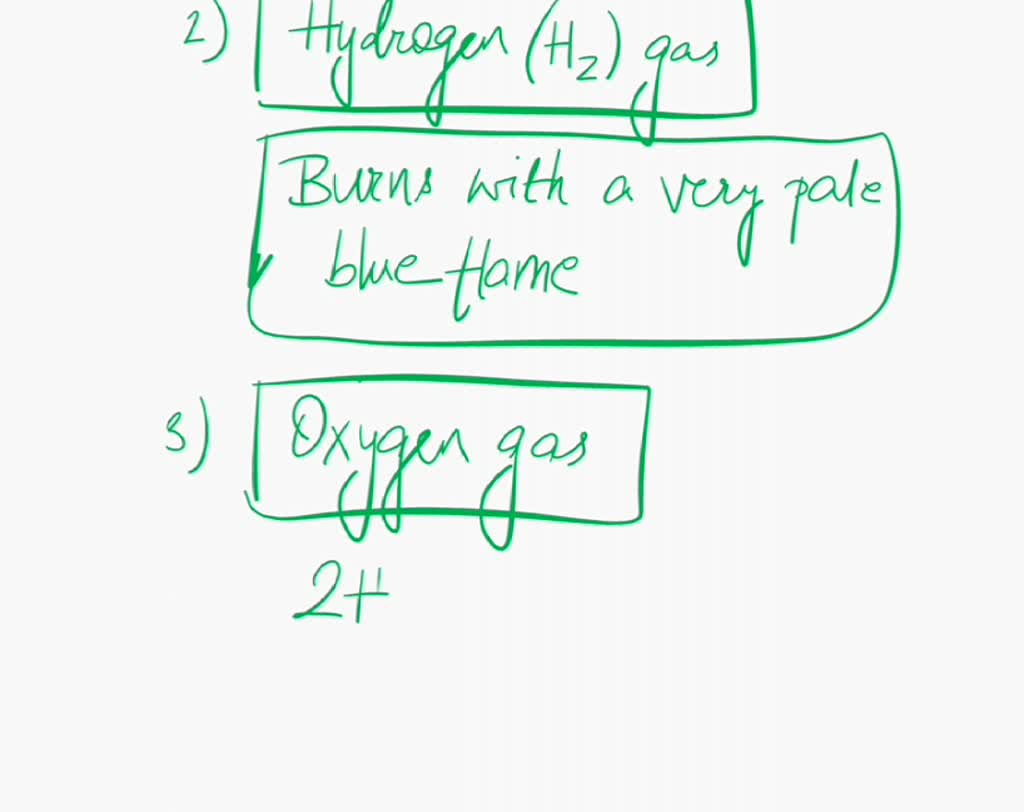 2) Hydrogen (H2) gas
Burns with a very pale
blue flame
3) Oxygen gas
2H